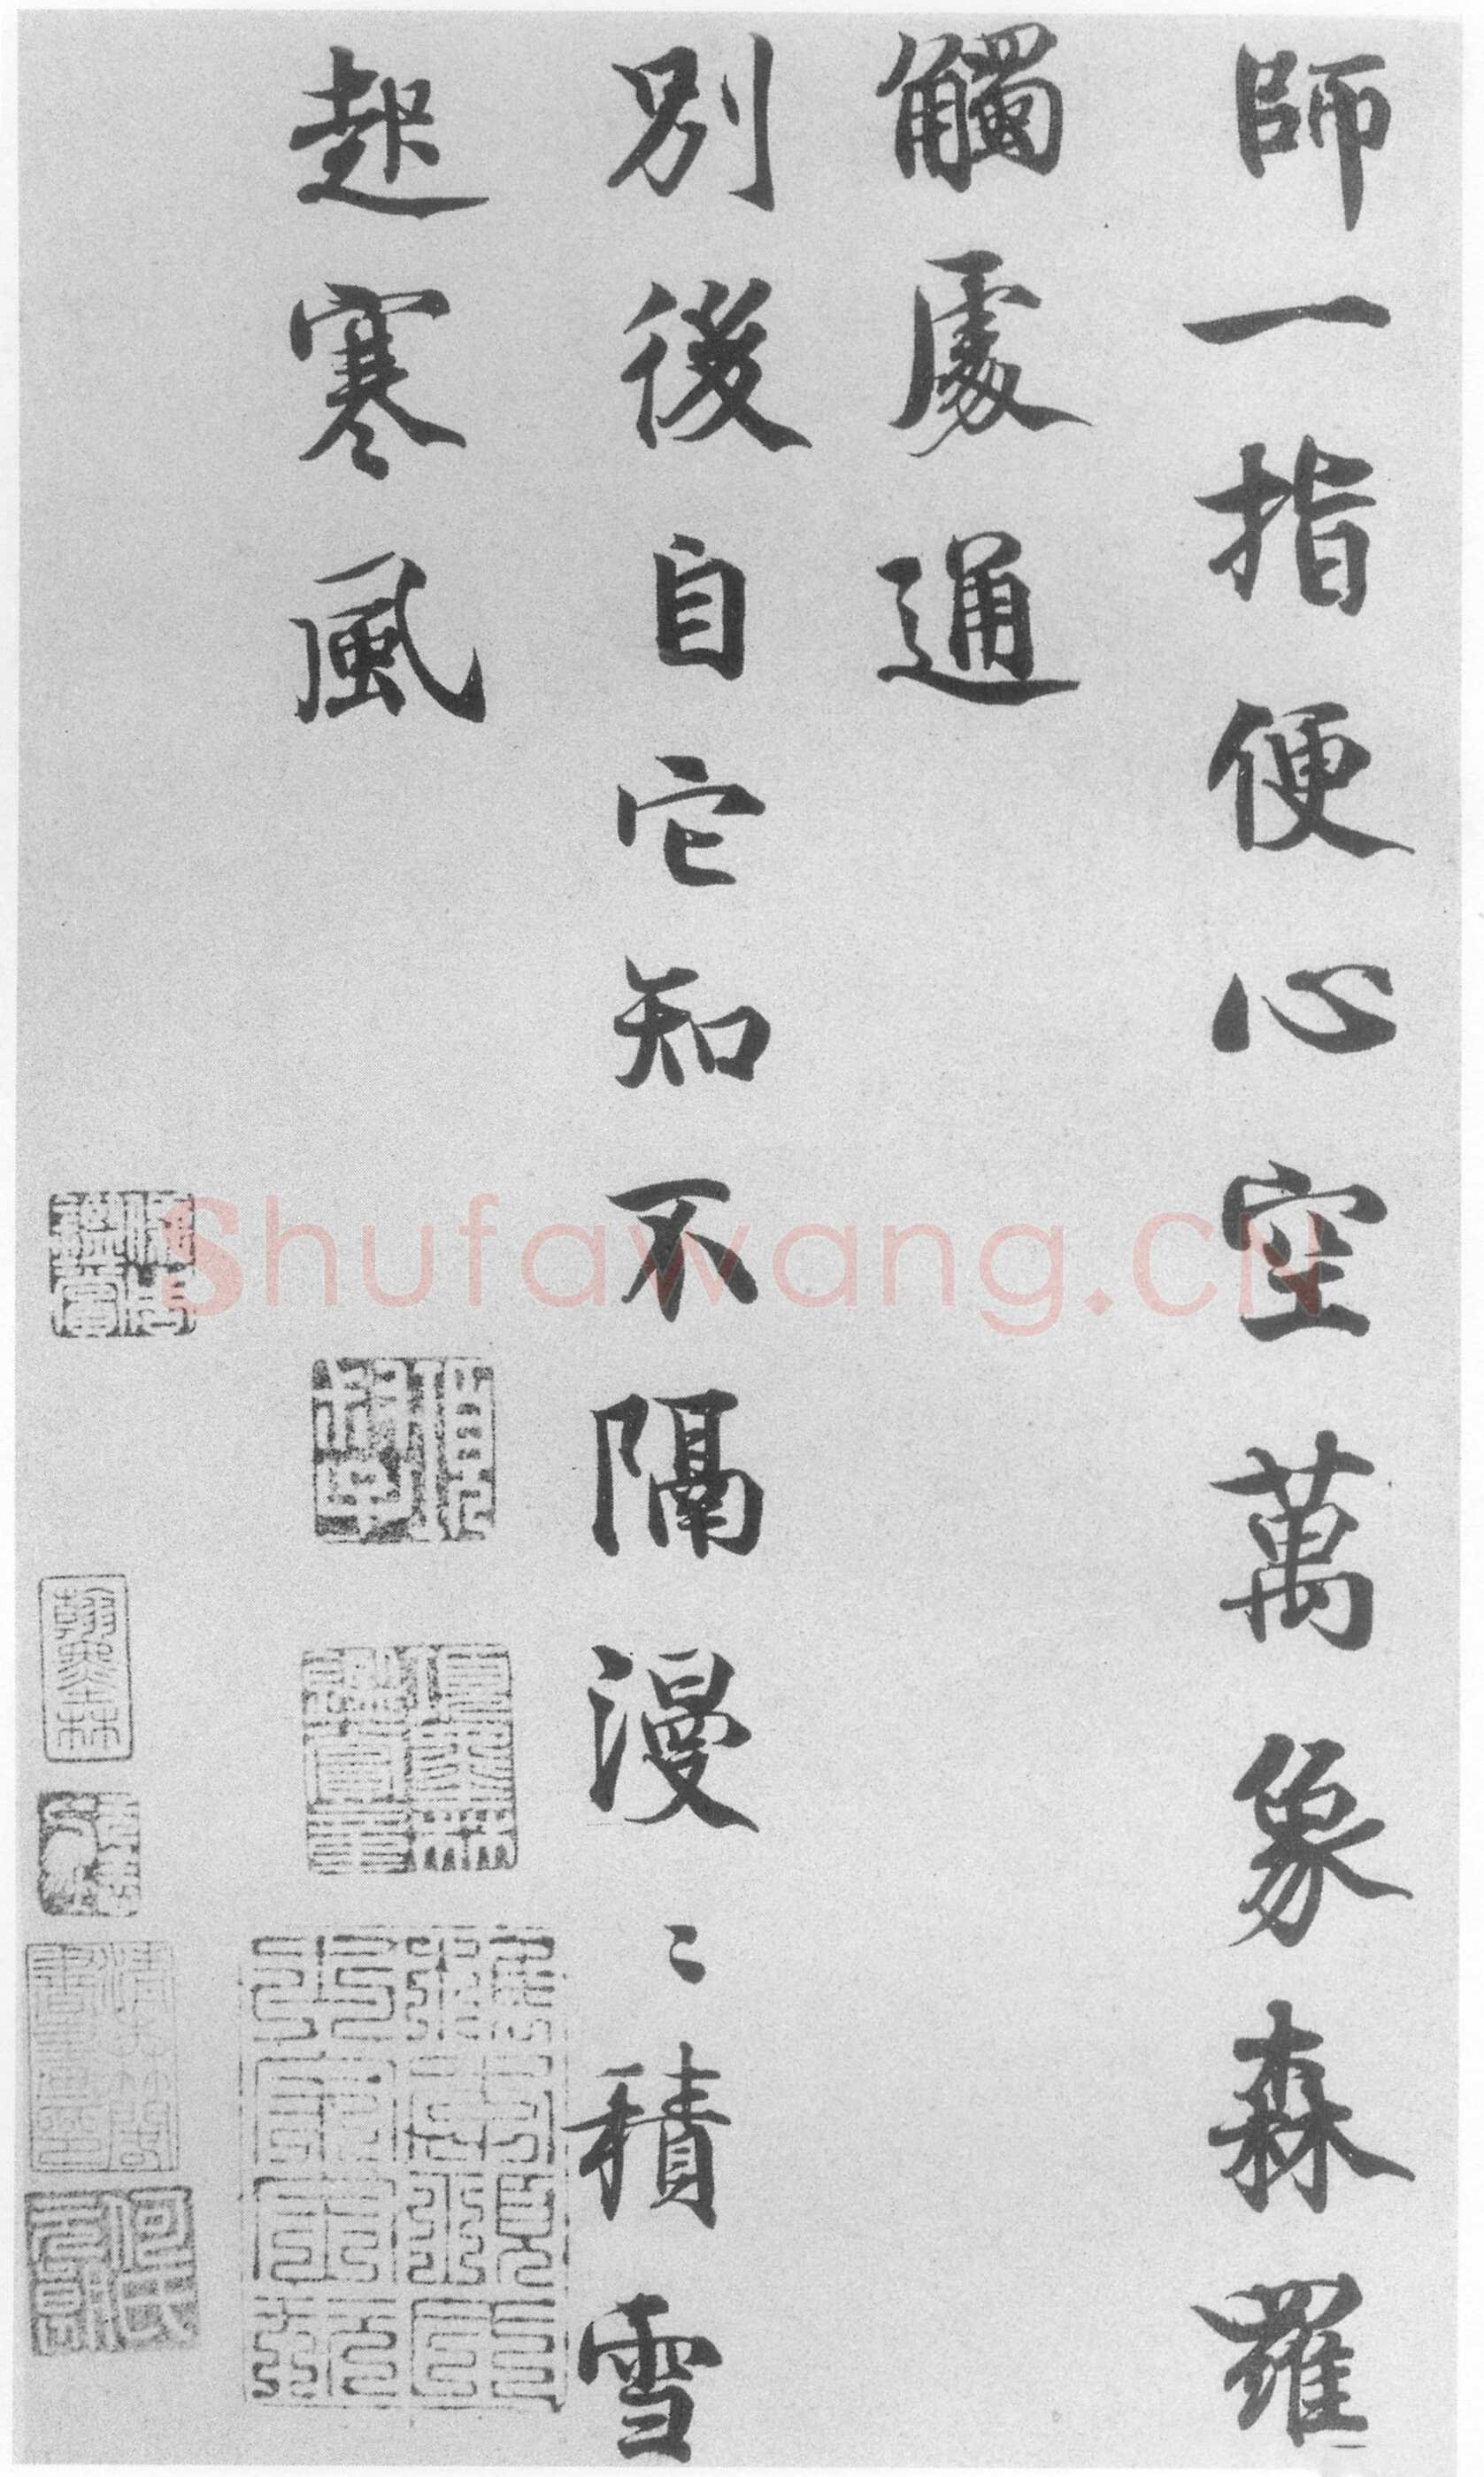 師一指便心空萬象森羅
觸處通
別後自它知不隔漫〻積雪
起寒風
翰墨林
Shufawang.CN